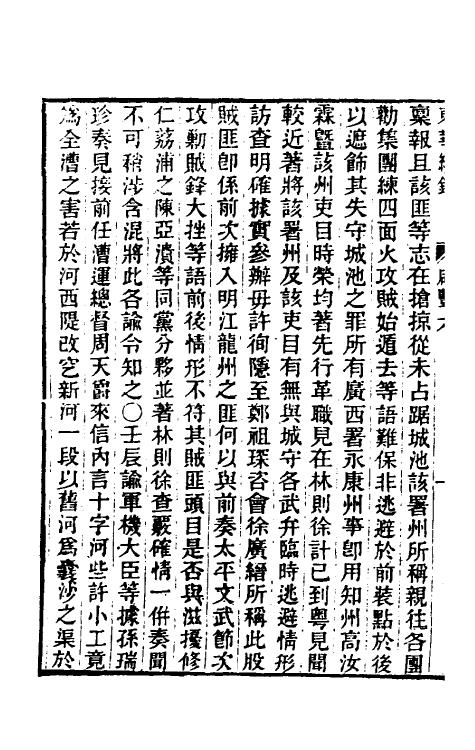 稟報且該匪等志在搶掠從未占踞城池該署州所稱親往各團
勸集團練四面火攻賊始遁去等語難保非逃避於前裝點於後
以遮飾其失守城池之罪所有廣西署永康州事卽用知州高汝
霖曁該州吏目時榮均著先行革職見在林則徐計已到粵見聞
較近著將該署州及該吏目有無與城守各武弁臨時逃避情形
訪查明確據實參辦毋許徇隱至鄭祖琛咨會徐廣縉所稱此股
賊匪卽係前次擁入明江龍州之匪何以與前奏太平文武節次
攻勦賊鋒大挫等語前後情形不符其賊匪頭目是否與滋擾修
仁荔浦之陳亞潰等同黨分夥並著林則徐查覈確情一倂奏聞
不可稍涉含混將此各諭令知之〇壬辰諭軍機大臣等據孫瑞
珍奏見接前任漕運總督周天爵來信內言十字河些許小工竟
爲全漕之害若於河西隄改挖新河一段以舊河爲囊沙之渠於